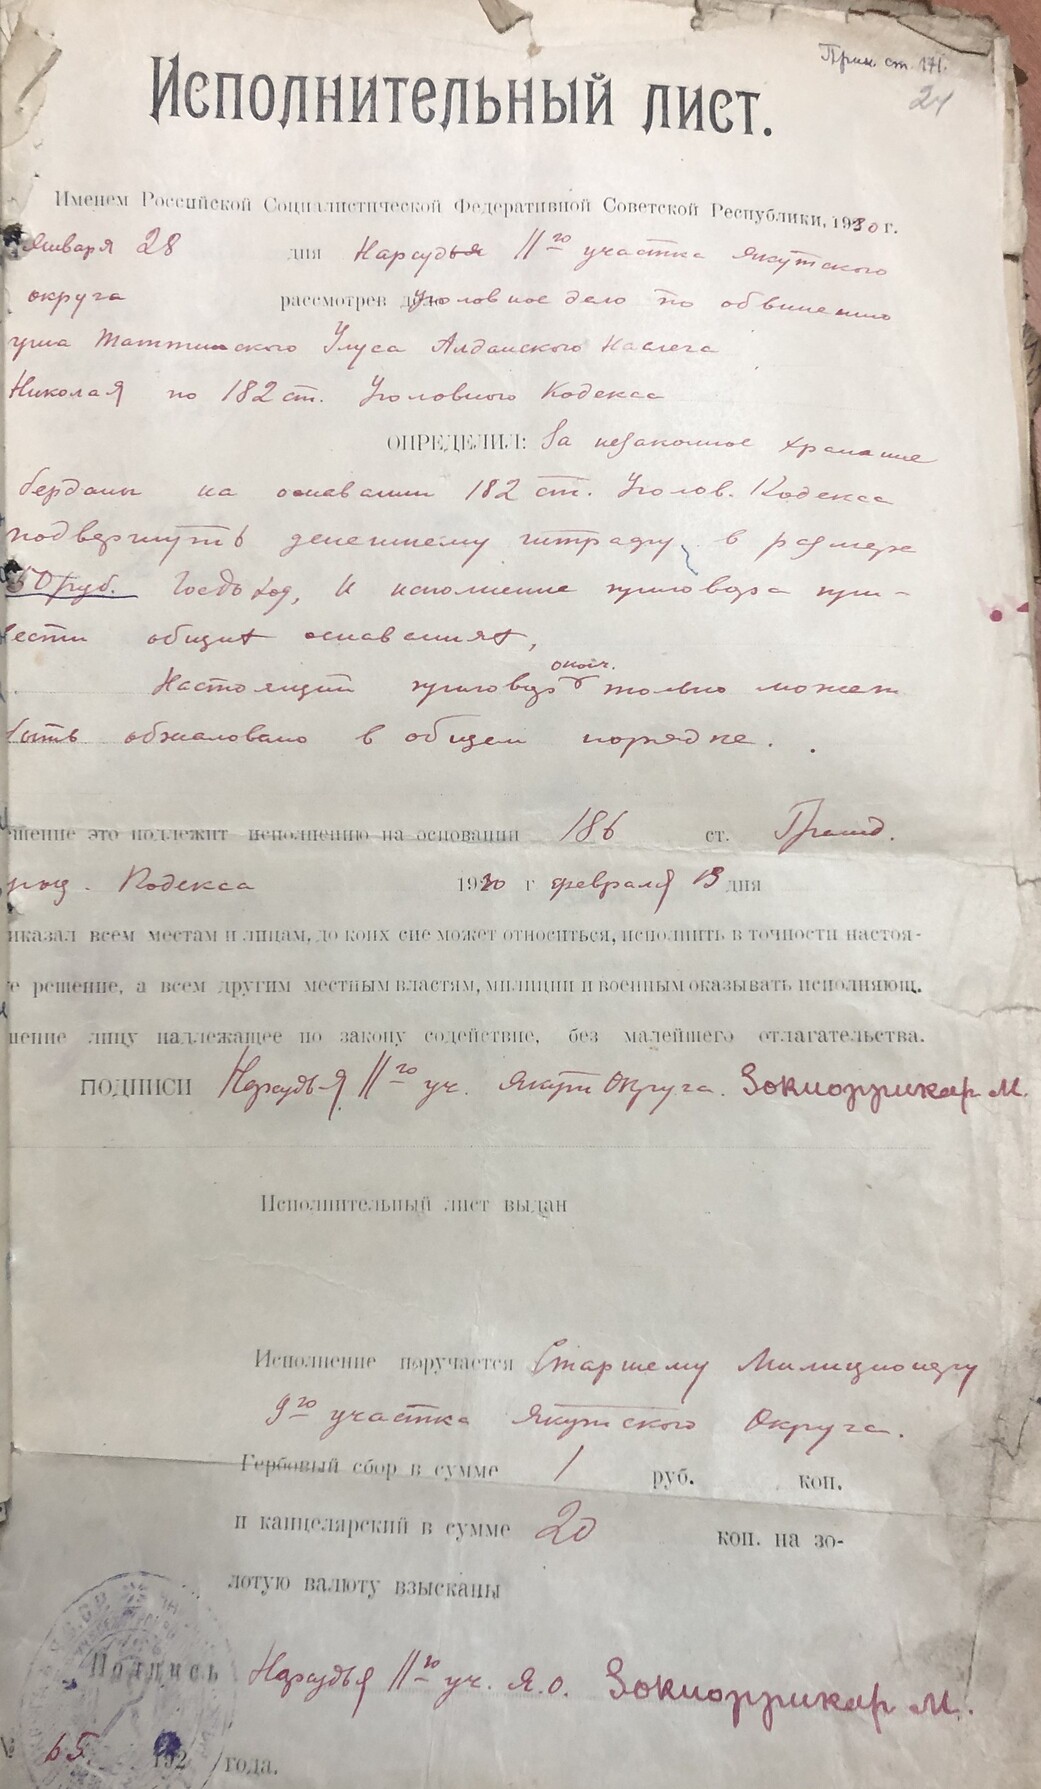 Прим. ст. 171.
24
Исполнительный лист.
Именем Российской Социалистической Федеративной Советской Республики, 1930 г.
Января 28 дня Нарсудья 11го участка Якутского
округа рассмотрев дело уголовное дело по обвинению
Таттинского Улуса Алданского наслега
Николая по 182 ст. Уголовного Кодекса
ОПРЕДЕЛИЛ: За незаконное хранение
берданы на основании 182 ст. Уголов. Кодекса
подвергнуть денежному штрафу в размере
50 руб. Госдоход, и исполнение приговора при-
вести общих основаниях,
Настоящий приговор оконч. только может
быть обжаловано в общем порядке.
шение это подлежит исполнению на основании 186 ст. Гражд.
проц. Кодекса 1930 г февраля 13 дня
иказал всем местам и лицам, до коих сие может относиться, исполнить в точности настоя-
е решение, а всем другим местным властям, милиции и военным оказывать исполняющ.
шение лицу надлежащее по закону содействие, без малейшего отлагательства.
ПОДПИСИ Нарсудья 11го уч. Якут Округа.
М.
Исполнительный лист выдан
Исполнение поручается Старшему Милиционеру
9го участка Якутского Округа.
Гербовый сбор в сумме 1 руб. коп.
и канцелярский в сумме 20 коп. на зо-
лотую валюту взысканы
Подпись Нарсудья 11го уч. Я.О.
М.
№ 65 192 /года.